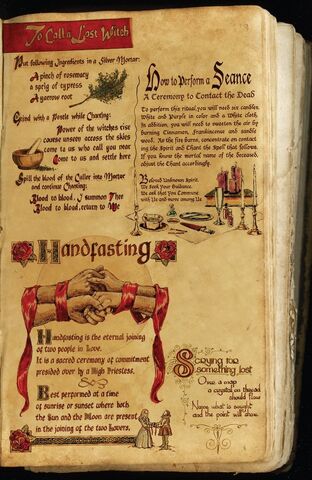 To Call a Lost Witch
Put following Ingredients in a Silver Mortar:
A pinch of rosemary
a sprig of cypress
A yarrow root
Grind with a Pestle while Chanting:
Power of the witches rise
course unseen across the skies
come to us who call you near
Come to us and settle here
Spill the blood of the Caller into Mortar
and continue Chanting:
Blood to blood, I summon Thee
Blood to blood, return to Me
How to Perform a Seance
A Ceremony to Contact the Dead
To perform this ritual, you will need six candles,
White and Purple in color and a White cloth.
In addition, you will need to sweeten the air by
burning Cinnamon, Frankincense and sandle
wood. As the fire burns, concentrate on contact
ing the Spirit and Chant the Spell that follows.
If you know the mortal name of the deceased,
adjust the Chant accordingly.
Beloved Unknown Spirit,
We Seek Your Guidance.
We ask that You Commune
with Us and move among Us.
Handfasting
Handfasting is the eternal joining
of two people in Love.
It is a sacred ceremony of commitment
presided over by a High Priestess.
Best performed at a time
of sunrise or sunset where both
the Sun and the Moon are present
in the joining of the two Lovers.
Scrying for
something lost
Over a map
a crystal on thread
should flow
Name what is sought
and the point will show.